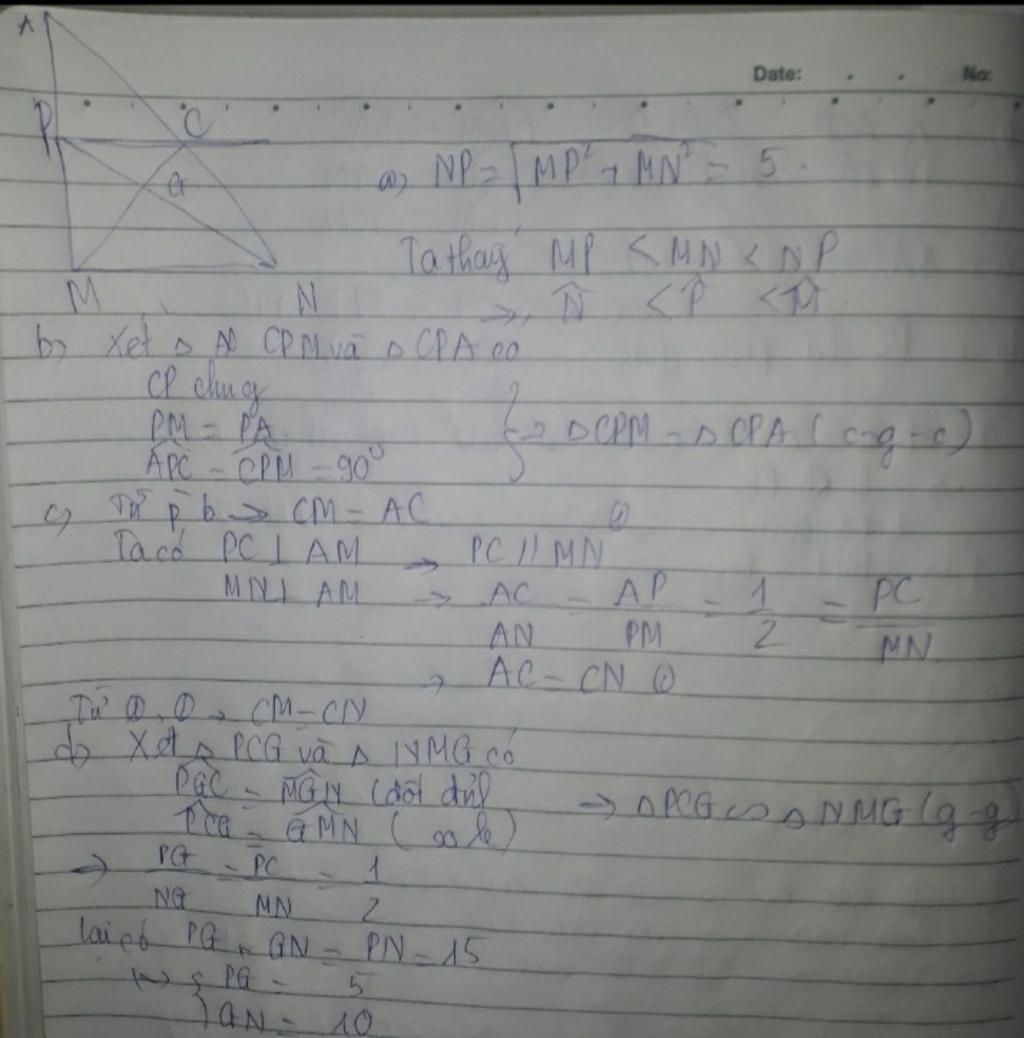 A
Date: No:
P C
G
a) NP = √MP² + MN² = 5
M N
Ta thấy MP < MN < NP
→ N̂ < P̂ < M̂
b) Xét △ CPM và △ CPA có
CP chung
PM = PA
APC = CPM = 90° } => △CPM = △CPA (c-g-c)
c) Từ p b → CM = AC ①
Ta có PC ⊥ AM → PC // MN
MN ⊥ AM → AC/AN = AP/PM = 1/2 = PC/MN
→ AC = CN ①
Từ ①, ① → CM = CN
d) Xét △ PCG và △ NMG có
PGC = MGN (đối đỉnh)
PCG = GMN (so le) → △PCG ∽ △NMG (g-g)
→ PG/NG = PC/MN = 1/2
Lại có PG + GN = PN = 15
↔ { PG = 5
GN = 10